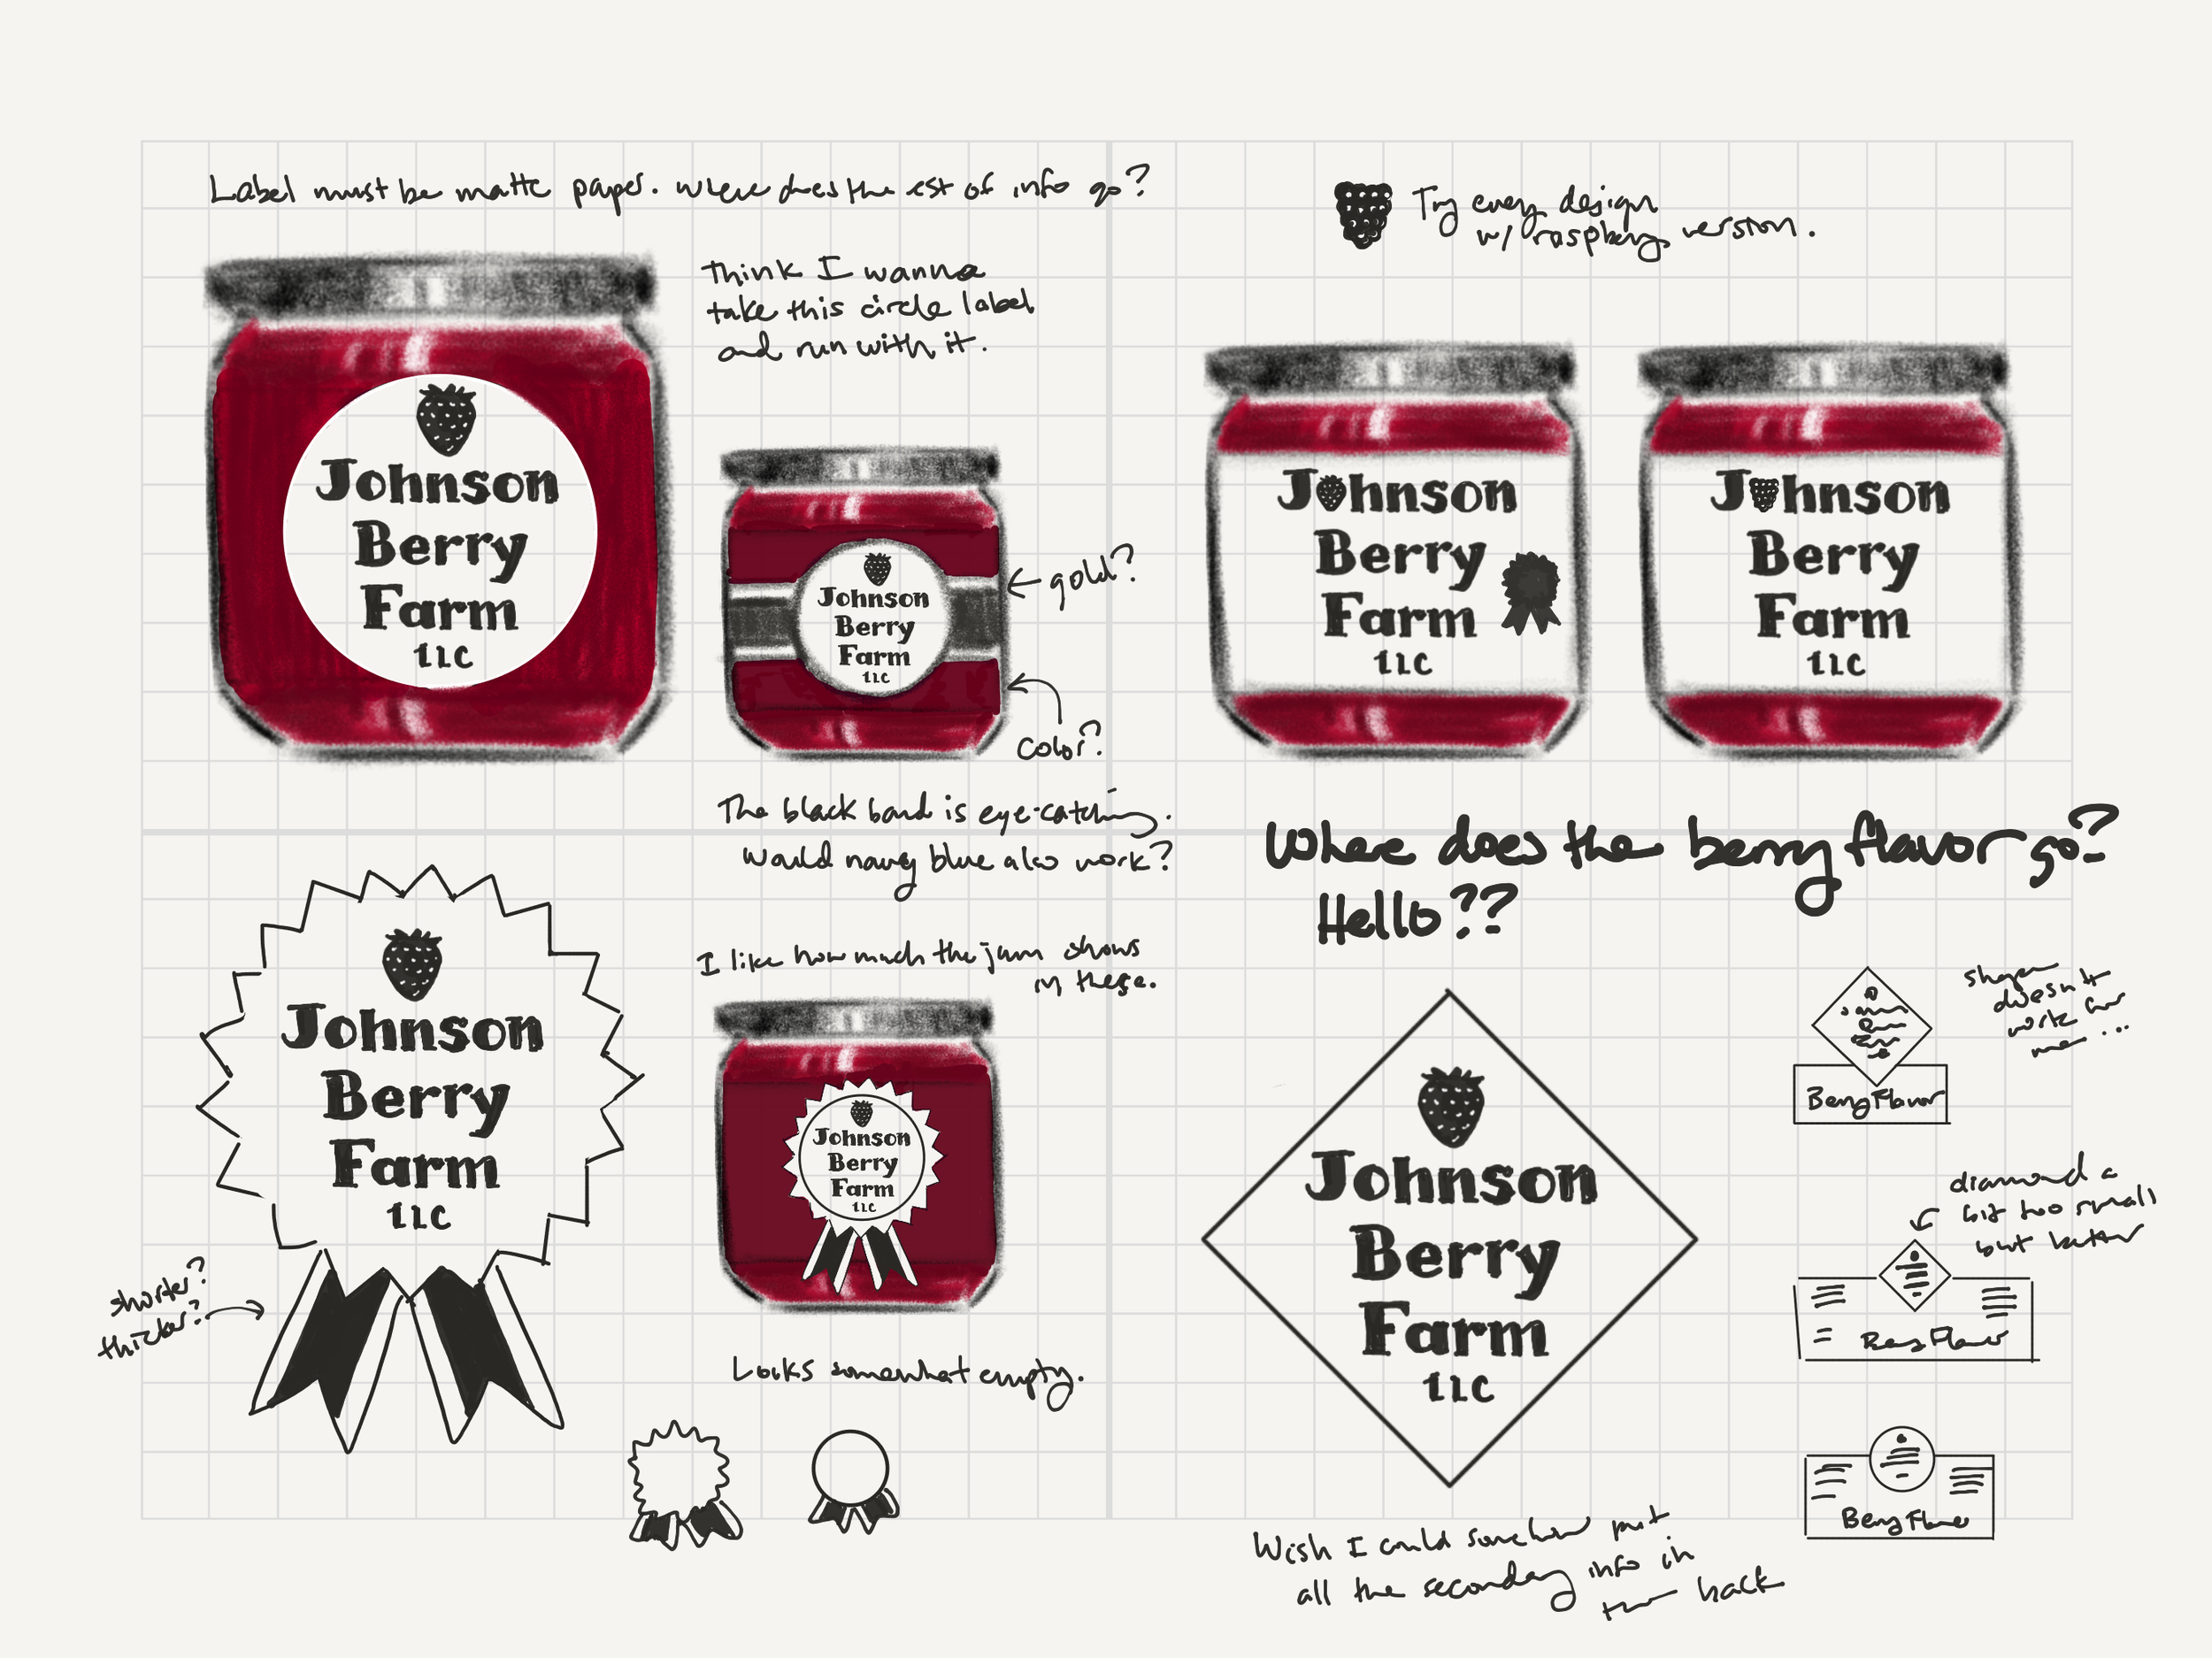 Label must be matte paper. Where does the est of info go?
Think I wanna
take this circle label
and run with it.
Johnson
Berry
Farm
LLC
Johnson
Berry
Farm
LLC
gold?
color?
The black band is eye-catching.
Would navy blue also work?
Try every design
w/ raspberry version.
Johnson
Berry
Farm
LLC
Johnson
Berry
Farm
LLC
Where does the berry flavor go?
Hello??
Johnson
Berry
Farm
LLC
shorter?
thicker?
I like how much the jam shows
in these.
Johnson
Berry
Farm
LLC
Looks somewhat empty.
Johnson
Berry
Farm
LLC
Berry Flavor
shape
doesn't
work for
me...
diamond a
bit too small
but better
Berry Flavor
Berry Flavor
Wish I could somehow put
all the secondary info in
the back